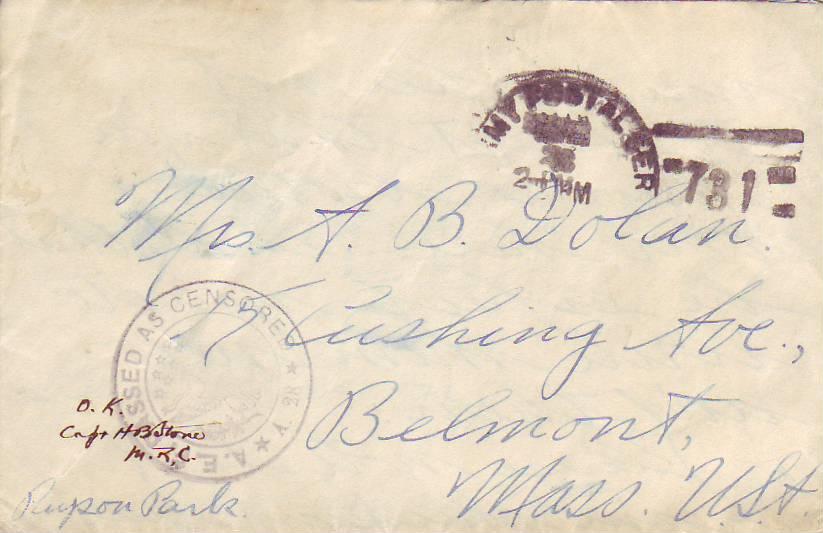 MY POSTAL SER
26
2-PM
731
Mrs. A. B. Dolan.
Cushing Ave.,
Belmont,
Mass. U.S.A.
SSED AS CENSORED
A.E
A. 28
O.K.
Capt H B Stone
M.R.C.
Park.